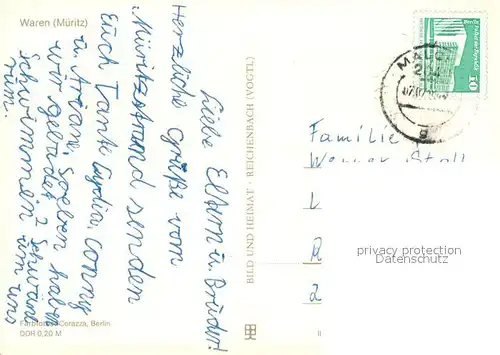 Waren (Müritz)
Liebe Eltern u. Brüder!
Herzliche Grüße vom
Müritzstrand senden
Euch Tante Lydia, Conny
u. Ariane. Soeben haben
wir gebadet. 2 Schwäne
schwimmen um uns
rum.
Farbfotos: Corazza, Berlin
DDR 0,20 M
BILD UND HEIMAT · REICHENBACH (VOGTL)
Familie
Werner
L
R
2
privacy protection
Datenschutz
II
10